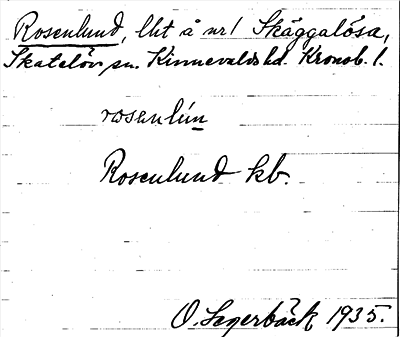 Rosenlund, lht å nr 1 Skäggalösa,
Skatelöv sn. Kinnevalds hd. Kronob. l.
rosenlún
Rosenlund kb.
O. Segerbäck 1935.